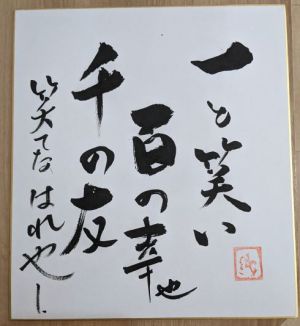 一と笑い
百の幸也
千の友
笑てな はれやし